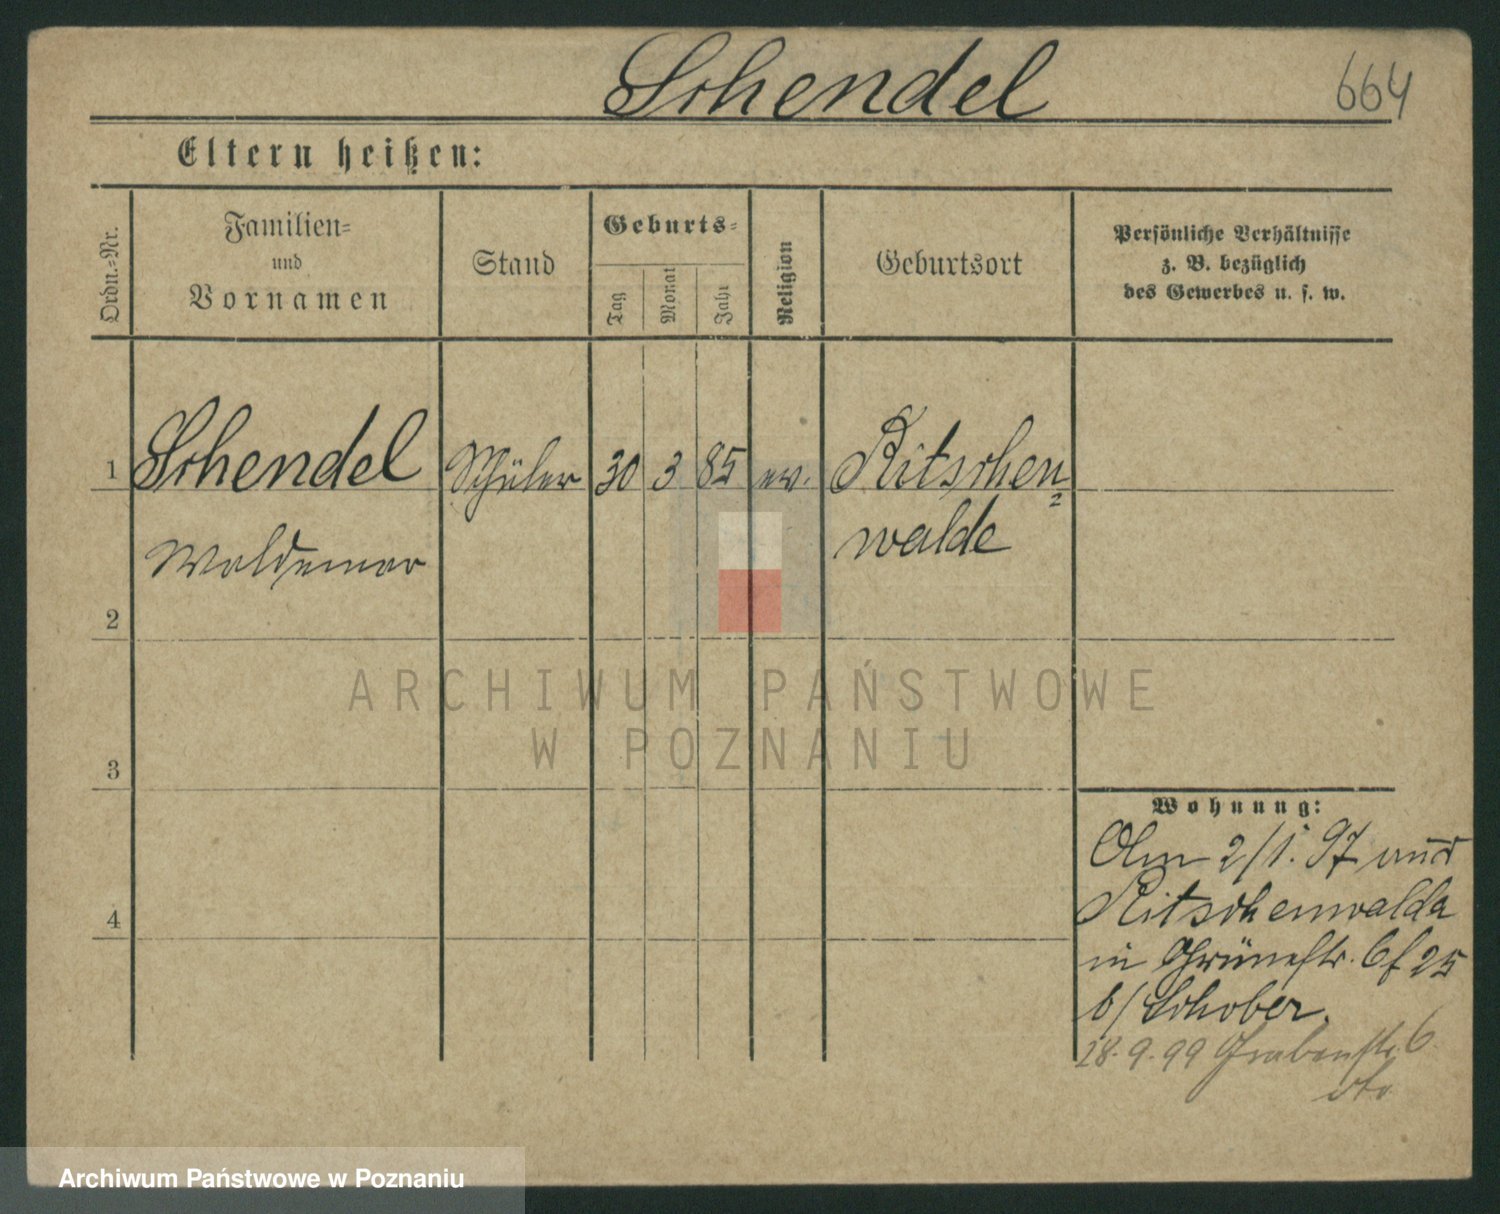 Schendel
664
Eltern heißen:
Ordn.-Nr.
Familien-
und
Vornamen
Stand
Geburts-
Tag
Monat
Jahr
Religion
Geburtsort
Persönliche Verhältnisse
z. B. bezüglich
des Gewerbes u. s. w.
1
Schendel
Schüler
30
3
85
ev.
Ritschen-
walde
Waldemar
2
ARCHIWUM PAŃSTWOWE
W POZNANIU
3
4
Wohnung:
Am 2/1. 97 aus
Ritschenwalde
in Grünestr. 6 f 25
b/ Schober.
28.9.99 Grabenstr. 6
Archiwum Państwowe w Poznaniu